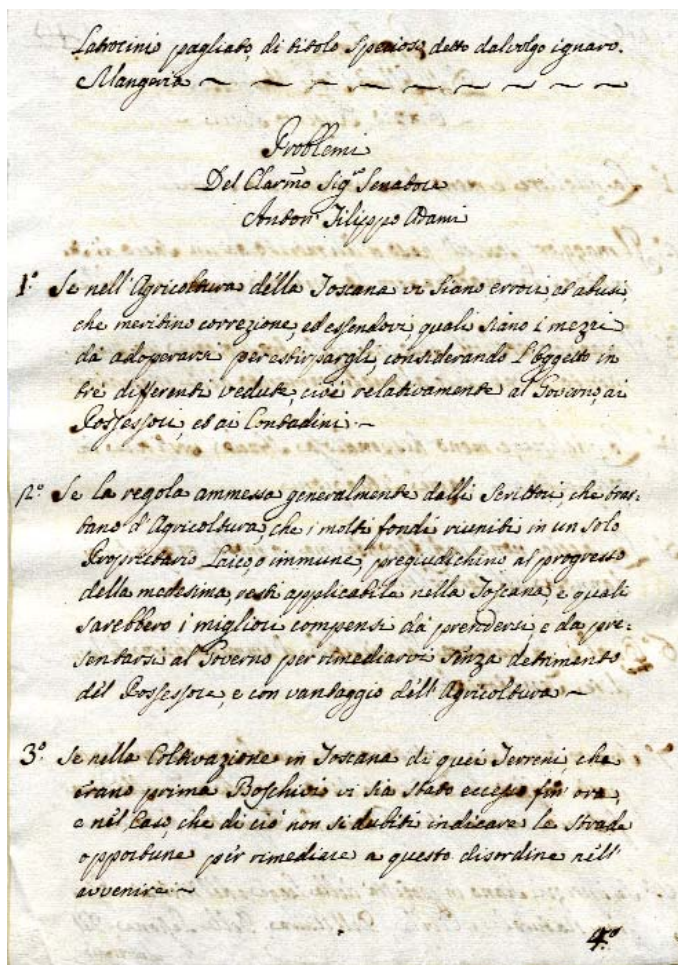 Latrocinio pagliato, di titolo specioso, detto dal volgo ignaro.
Mangeria ~ ~ ~ ~ ~ ~ ~ ~ ~
Problemi
Del Clarmo Sigr Senatore
Anton Filippo Adami
1.° Se nell'Agricoltura della Toscana vi siano errori, ed abusi,
che meritino correzione, ed essendovi, quali siano i mezzi
da adoperarsi per estirpargli, considerando l'Oggetto in
tre differenti vedute, cioè relativamente al Governo, ai
Possessori, ed ai Contadini ~
2.° Se la regola ammessa generalmente dalli Scrittori, che trat=
tano d'Agricoltura, che i molti fondi riuniti in un solo
Proprietario Laico, o immune, pregiudichino al progresso
della medesima, resti applicabile nella Toscana, e quali
sarebbero i migliori compensi da prendersi, e da pre=
sentarsi al Governo per rimediarvi senza detrimento
del Possessore, e con vantaggio dell'Agricoltura ~
3.° Se nella Coltivazione in Toscana di quei Terreni, che
erano prima Boschivi vi sia stato eccesso fin ora,
e nel Caso, che di ciò non si dubiti indicare le strade
opportune per rimediare a questo disordine nell'
avvenire ~
4.°